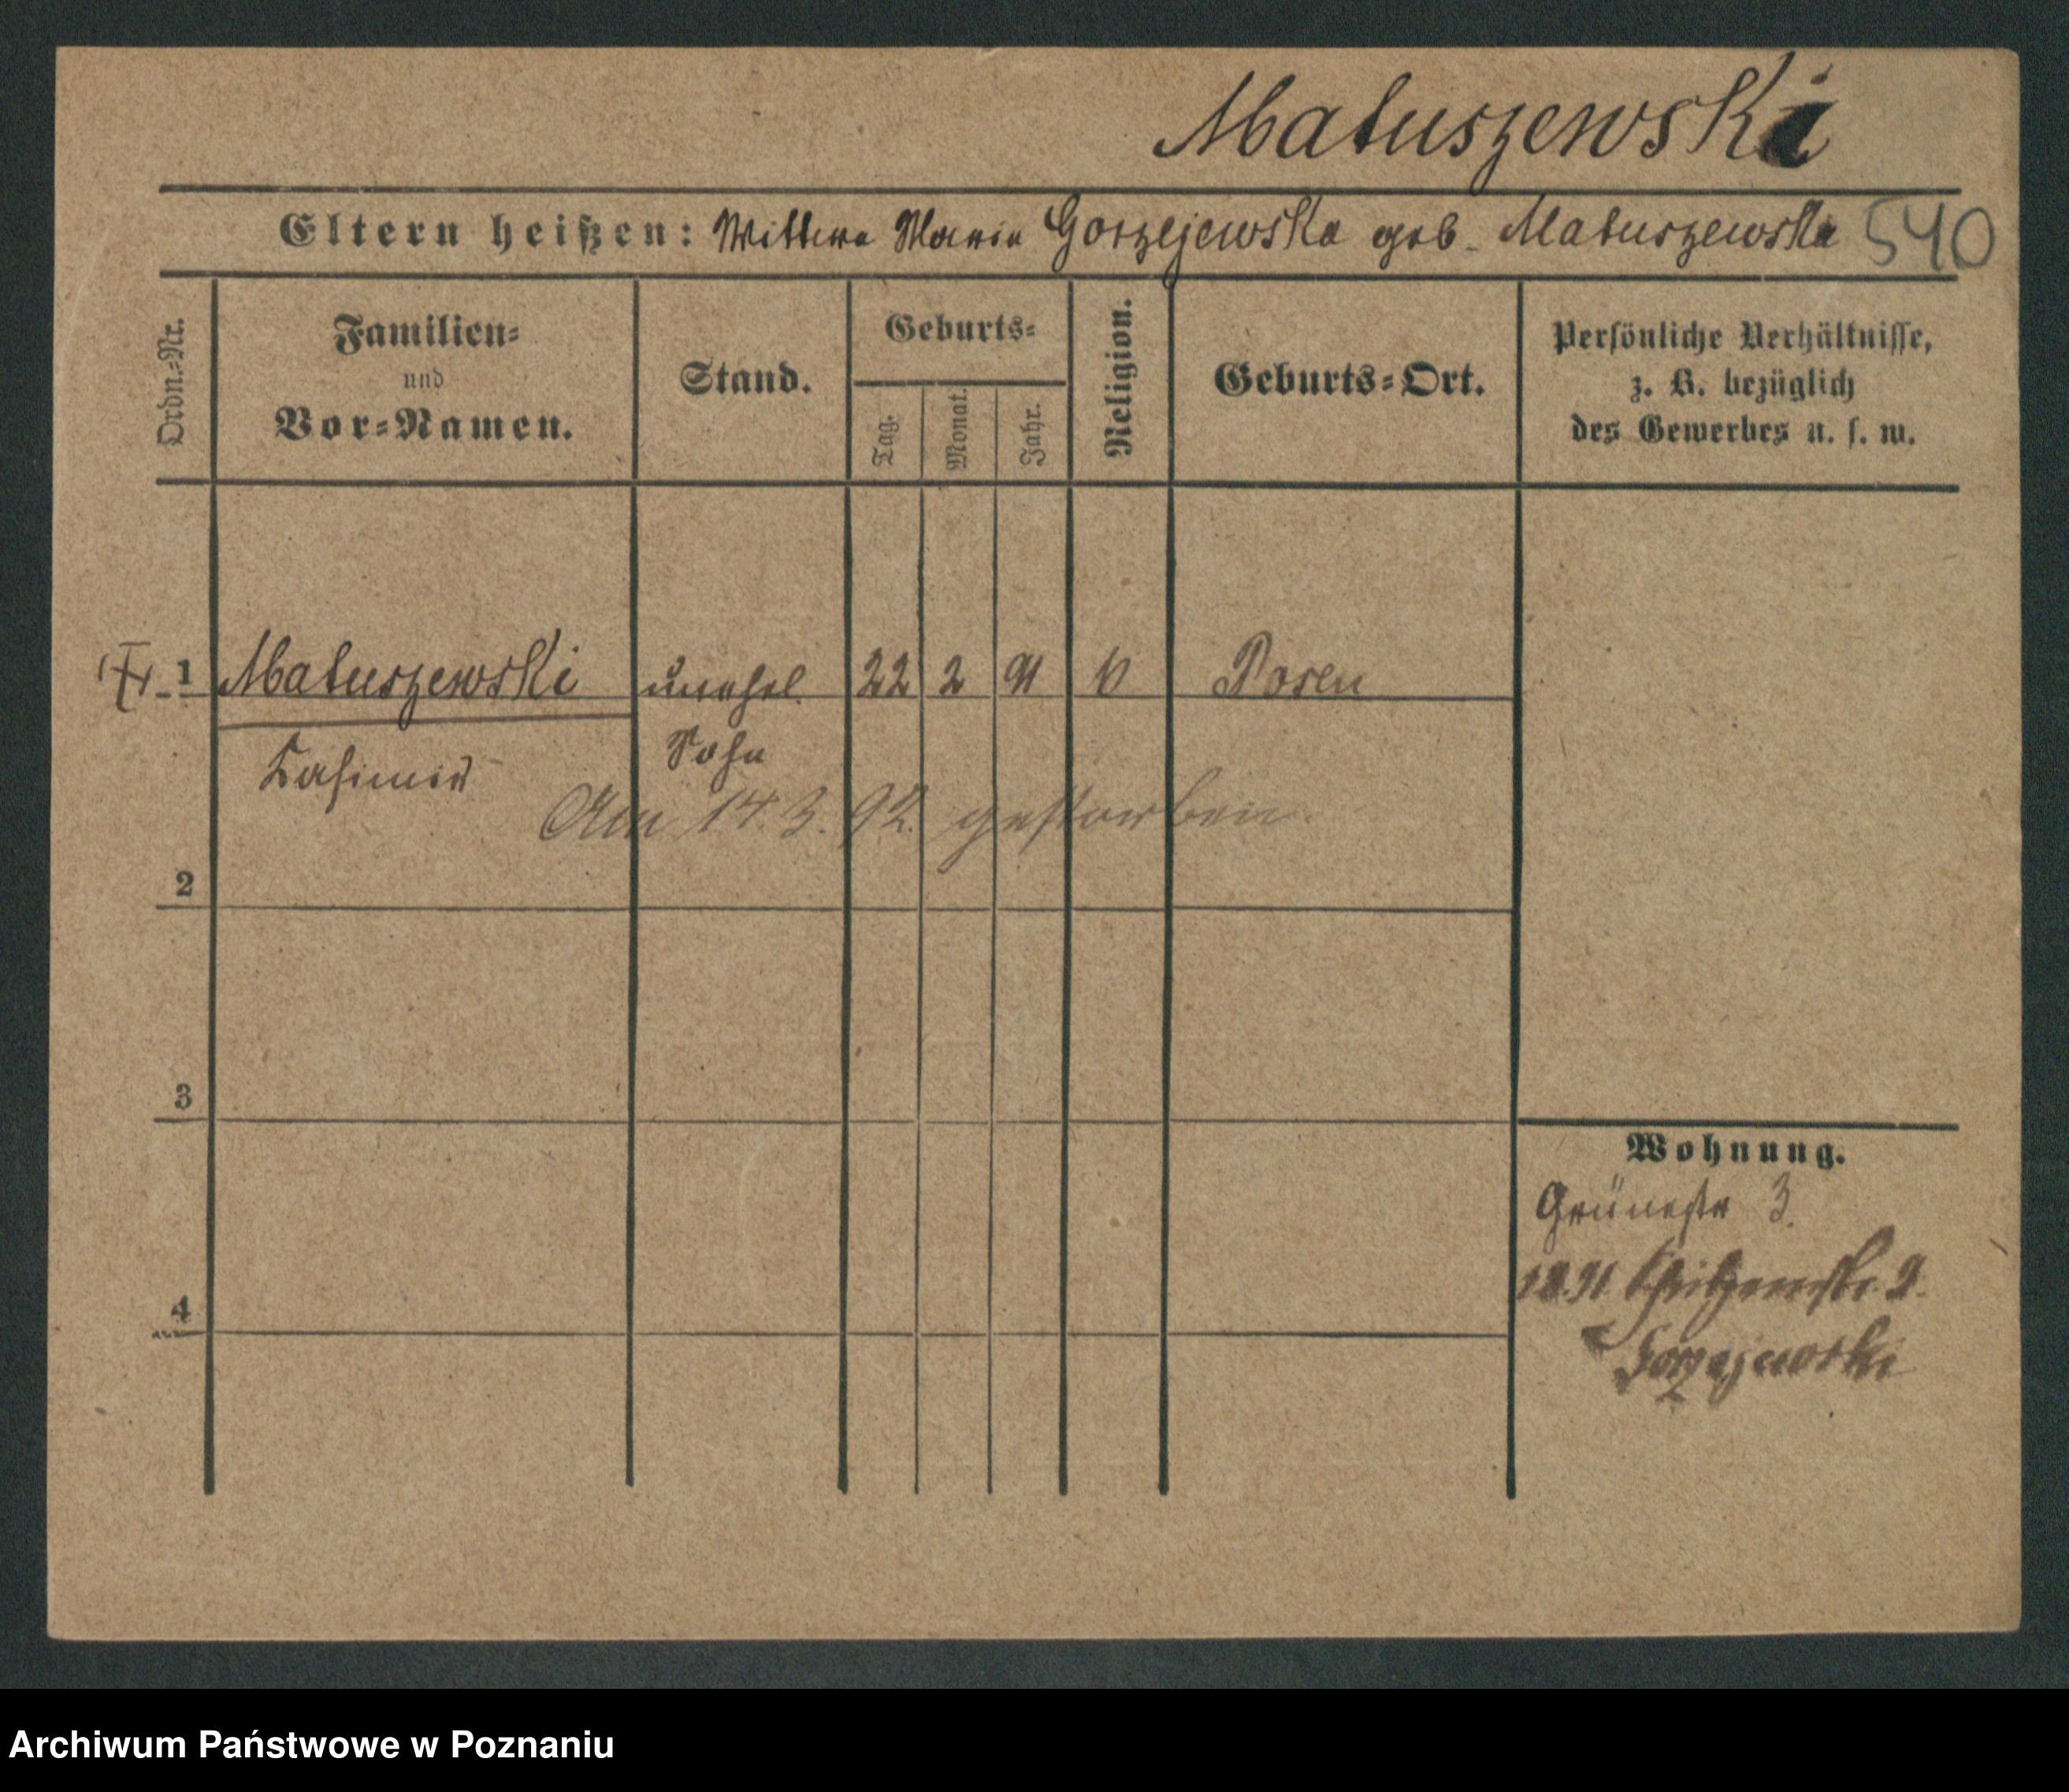 Matuszewski
Eltern heißen: Wittwe Marie Gorzejewska geb. Matuszewska 540
Ordn.-Nr.
Familien- und Vor-Namen.
Stand.
Geburts-
Tag.
Monat.
Jahr.
Religion.
Geburts-Ort.
Persönliche Verhältnisse,
z. B. bezüglich
des Gewerbes u. s. w.
1 Matuszewski unehel. 22 2 91 k Posen
Casimir Sohn
Am 14.3.92. gestorben.
2
3
4
Wohnung.
Grünestr 3.
Gorzejewski
Archiwum Państwowe w Poznaniu